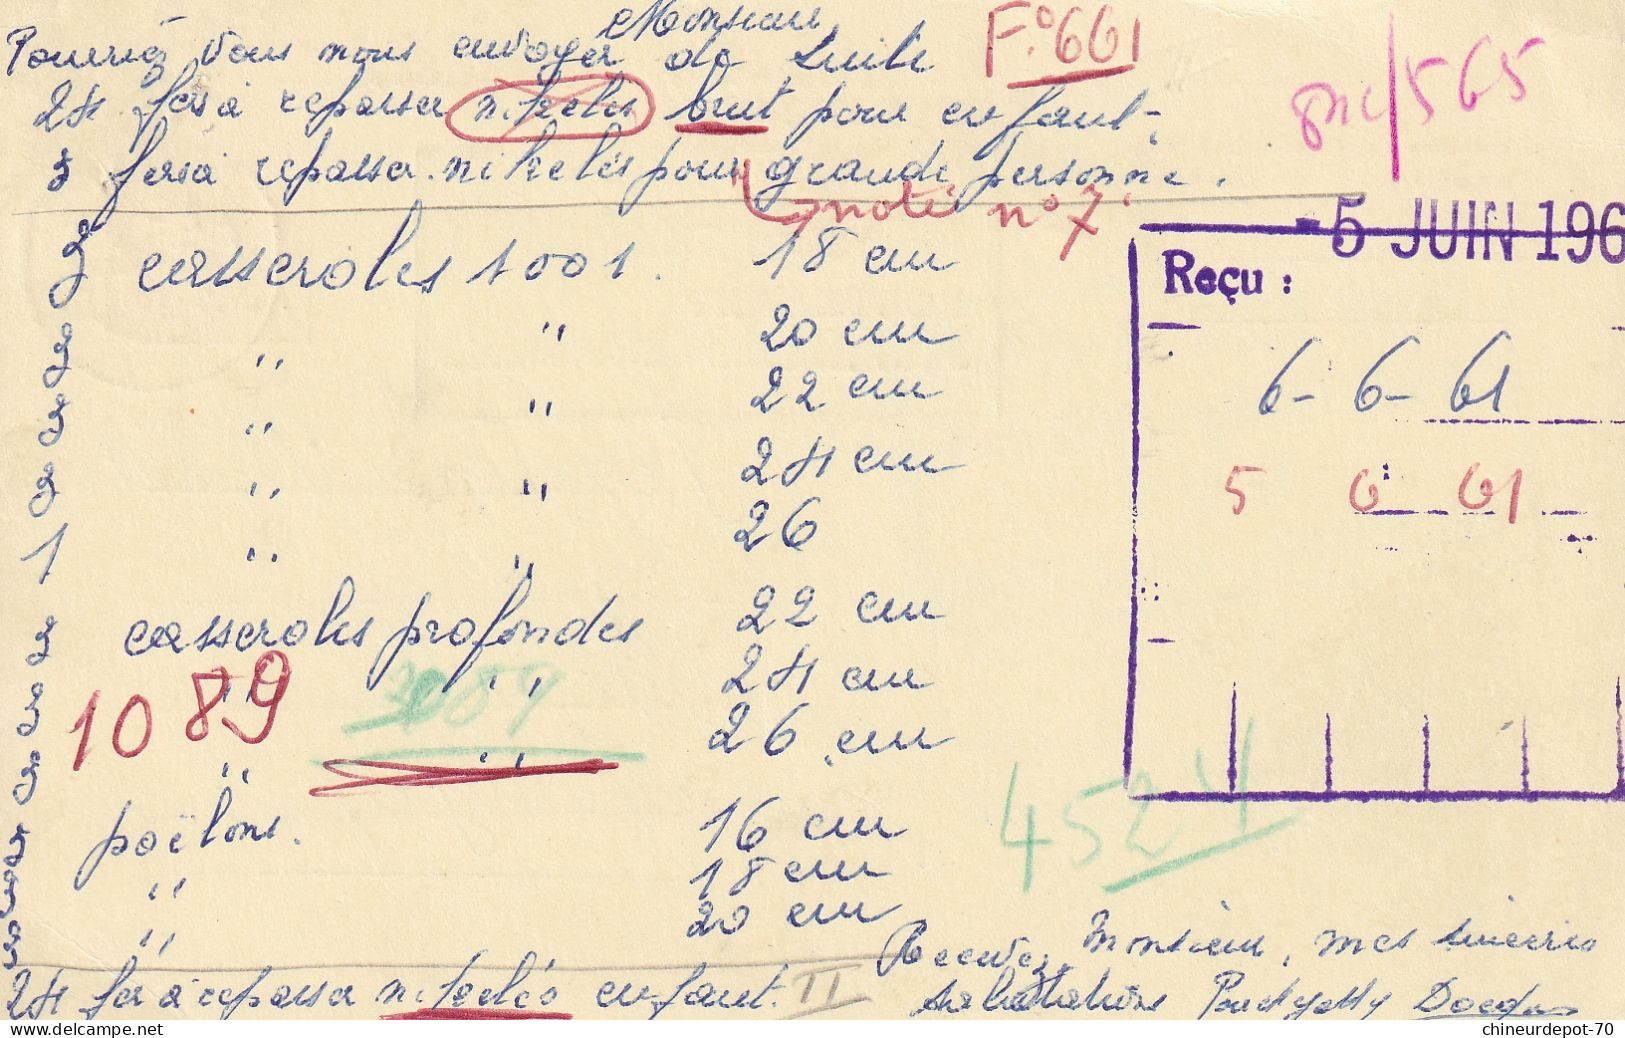 Monsieur
Pourriez Vous nous envoyer de suite
F.º 661
24 fers à repasser nikelés brut pour enfant.
3 fers à repasser nikelés pour grande personne.
noté nº 7
565
3 casseroles 1001. 18 cm
- 5 JUIN 196
Reçu :
3 " " 20 cm
3 " " 22 cm
6 - 6 - 61
3 " " 24 cm
5 6 61
1 " " 26
3 casseroles profondes 22 cm
3 " " 24 cm
1089
3 " " 26 cm
4524
3 poëlons. 16 cm
3 " 18 cm
3 " 20 cm
Recevez, Monsieur, mes sincères
24 fer à repasser nikelés enfant. II
salutations
chineurdepot-70